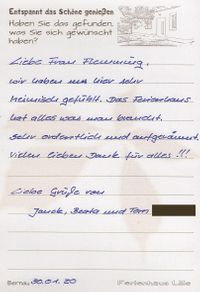 Entspannt das Schöne genießen
Haben Sie das gefunden,
was Sie sich gewünscht
haben?
Liebe Frau Flemmiung,
wir haben uns hier sehr
heimisch gefühlt. Das Ferienhaus
hat alles was man braucht.
Sehr ordentlich und aufgeräumt.
Vielen lieben Dank für alles !!!
Liebe Grüße von
Janek, Beata und Tom
Bernau, 30.01.20
Ferienhaus Lille